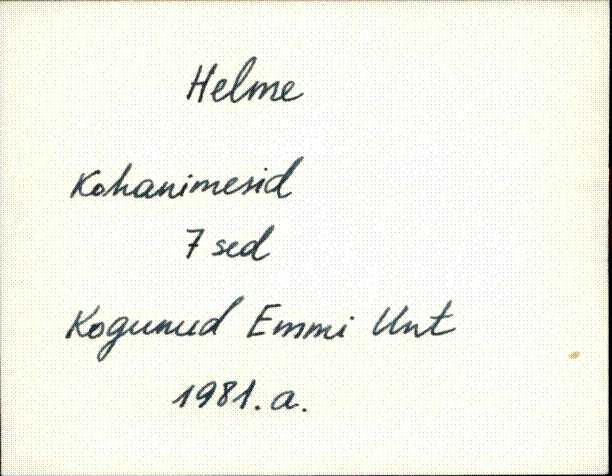 Helme
Kohanimesid
7 sed
Kogunud Emmi Unt
1981. a.